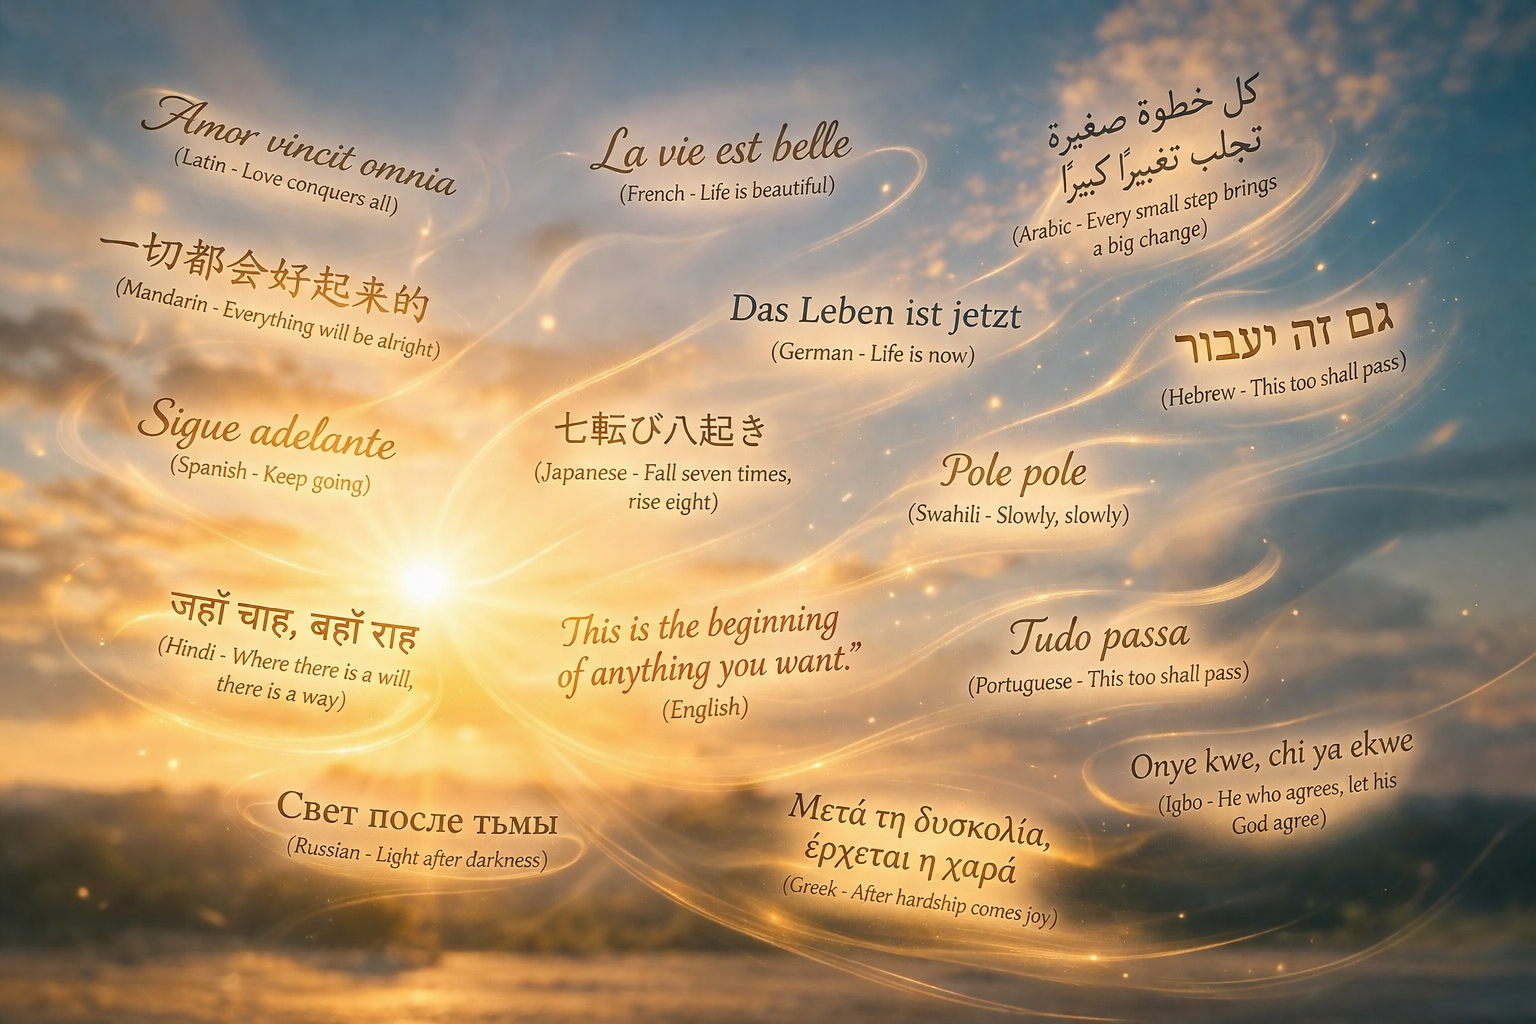 Amor vincit omnia
(Latin - Love conquers all)
La vie est belle
(French - Life is beautiful)
كل خطوة صغيرة
تجلب تغييرًا كبيرًا
(Arabic - Every small step brings
a big change)
一切都会好起来的
(Mandarin - Everything will be alright)
Das Leben ist jetzt
(German - Life is now)
גם זה יעבור
(Hebrew - This too shall pass)
Sigue adelante
(Spanish - Keep going)
七転び八起き
(Japanese - Fall seven times,
rise eight)
Pole pole
(Swahili - Slowly, slowly)
जहाॅ चाह, बहाॅ राह
(Hindi - Where there is a will,
there is a way)
This is the beginning
of anything you want.”
(English)
Tudo passa
(Portuguese - This too shall pass)
Onye kwe, chi ya ekwe
(Igbo - He who agrees, let his
God agree)
Свет после тьмы
(Russian - Light after darkness)
Μετά τη δυσκολία,
έρχεται η χαρά
(Greek - After hardship comes joy)